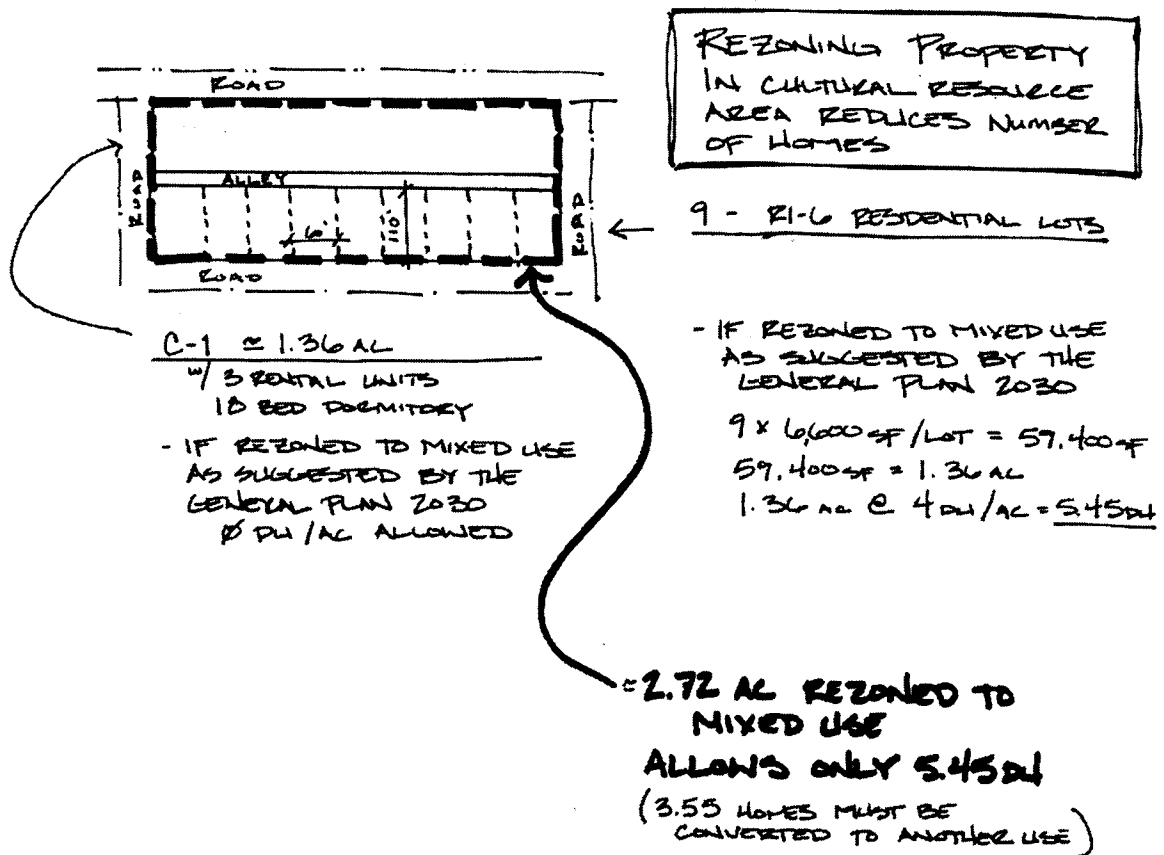 REZONING PROPERTY
IN CULTURAL RESOURCE
AREA REDUCES NUMBER
OF HOMES
ROAD
ROAD
ALLEY
60'
110'
ROAD
ROAD
9 - R1-6 RESIDENTIAL LOTS
C-1 ≅ 1.36 AC
w/ 3 RENTAL UNITS
18 BED DORMITORY
- IF REZONED TO MIXED USE
AS SUGGESTED BY THE
GENERAL PLAN 2030
Ø DU/AC ALLOWED
- IF REZONED TO MIXED USE
AS SUGGESTED BY THE
GENERAL PLAN 2030
9 x 6,600 SF/LOT = 59,400 SF
59,400 SF = 1.36 AC
1.36 AC @ 4 DU/AC = 5.45 DU
≅ 2.72 AC REZONED TO
MIXED USE
ALLOWS ONLY 5.45 DU
(3.55 HOMES MUST BE
CONVERTED TO ANOTHER USE)